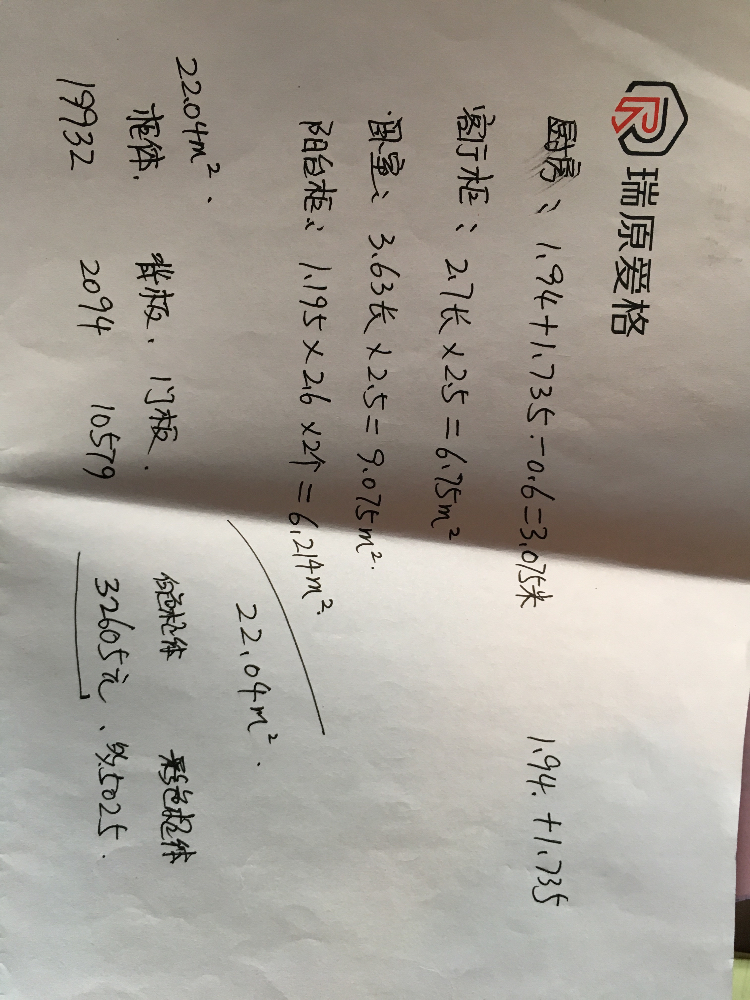 瑞原爱格
厨房: 1.94+1.735-0.6=3.075米 1.94.+1.735
客厅柜: 2.7长×2.5=6.75m²
卧室: 3.63长×2.5=9.075m².
阳台柜: 1.195×2.6×2个=6.214m².
22.04m².
22.04m².
柜体. 背板. 门板. 柜体 彩色柜体
19932 2094 10579 32605元、 5025.